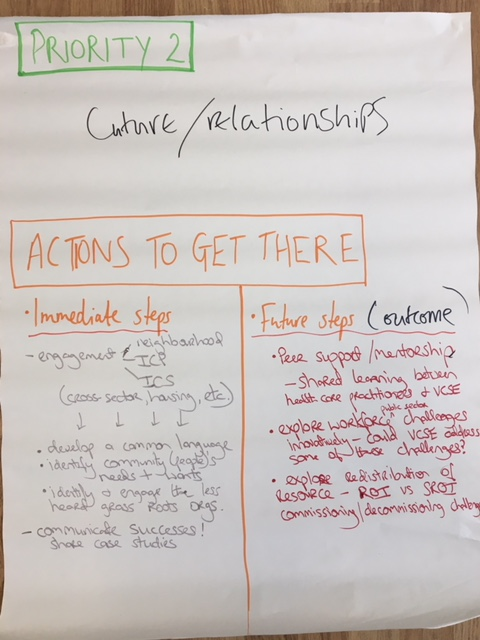 PRIORITY 2
Cuture/relationships
ACTIONS TO GET THERE
• Immediate steps
- engagement
neighbourhood
ICP
ICS
(cross-sector, housing, etc.)
• develop a common language
• identify community (people)s
needs + wants
• identify & engage the less
heard grass roots orgs.
- communicate successes!
share case studies
• Future steps (outcome)
• Peer support/mentorship
- shared learning between
health care practitioners & VCSE
• explore workforce public sector challenges
innovatively - could VCSE address
some of those challenges?
• explore redistribution of
resource - ROI vs SROI
commissioning/decommissioning challenge